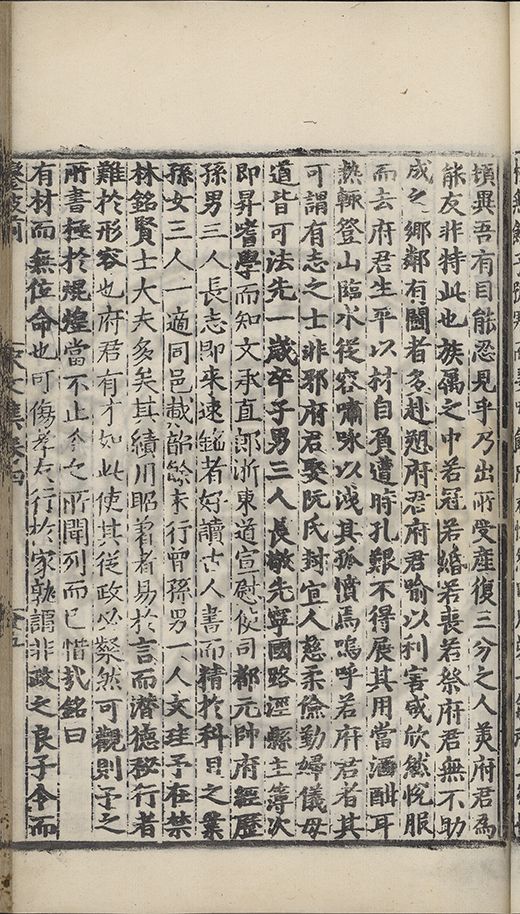 頃異吾有目能忍見乎乃出所受產復三分之人美府君為
能友非特此也族屬之中若冠若婚若喪若祭府君無不助
成之鄉鄰有鬪者多赴愬府君府君喻以利害咸欣然悅服
而去府君生平以材自負遭時孔艱不得展其用當酒酣耳
熱輒登山臨水從容嘯咏以洩其孤憤焉嗚呼若府君者其
可謂有志之士非邪府君娶阮氏封宜人慈柔儉勤婦儀母
道皆可法先一歲卒子男三人長敬先寧國路涇縣主簿次
即昇嗜學而知文承直郎浙東道宣慰使司都元帥府經歷
孫男三人長志即來速銘者好讀古人書而精於科目之業
孫女三人一適同邑戴 餘未行曾孫男一人文珪予在禁
林銘賢士大夫多矣其績用昭著者易於言而潛德秘行者
難於形容也府君有才如此使其從政必粲然可觀則予之
所書極於焜煌當不止今之所聞列而已惜哉銘曰
有材而無位命也可傷孝友行於家孰謂非政之良子令而